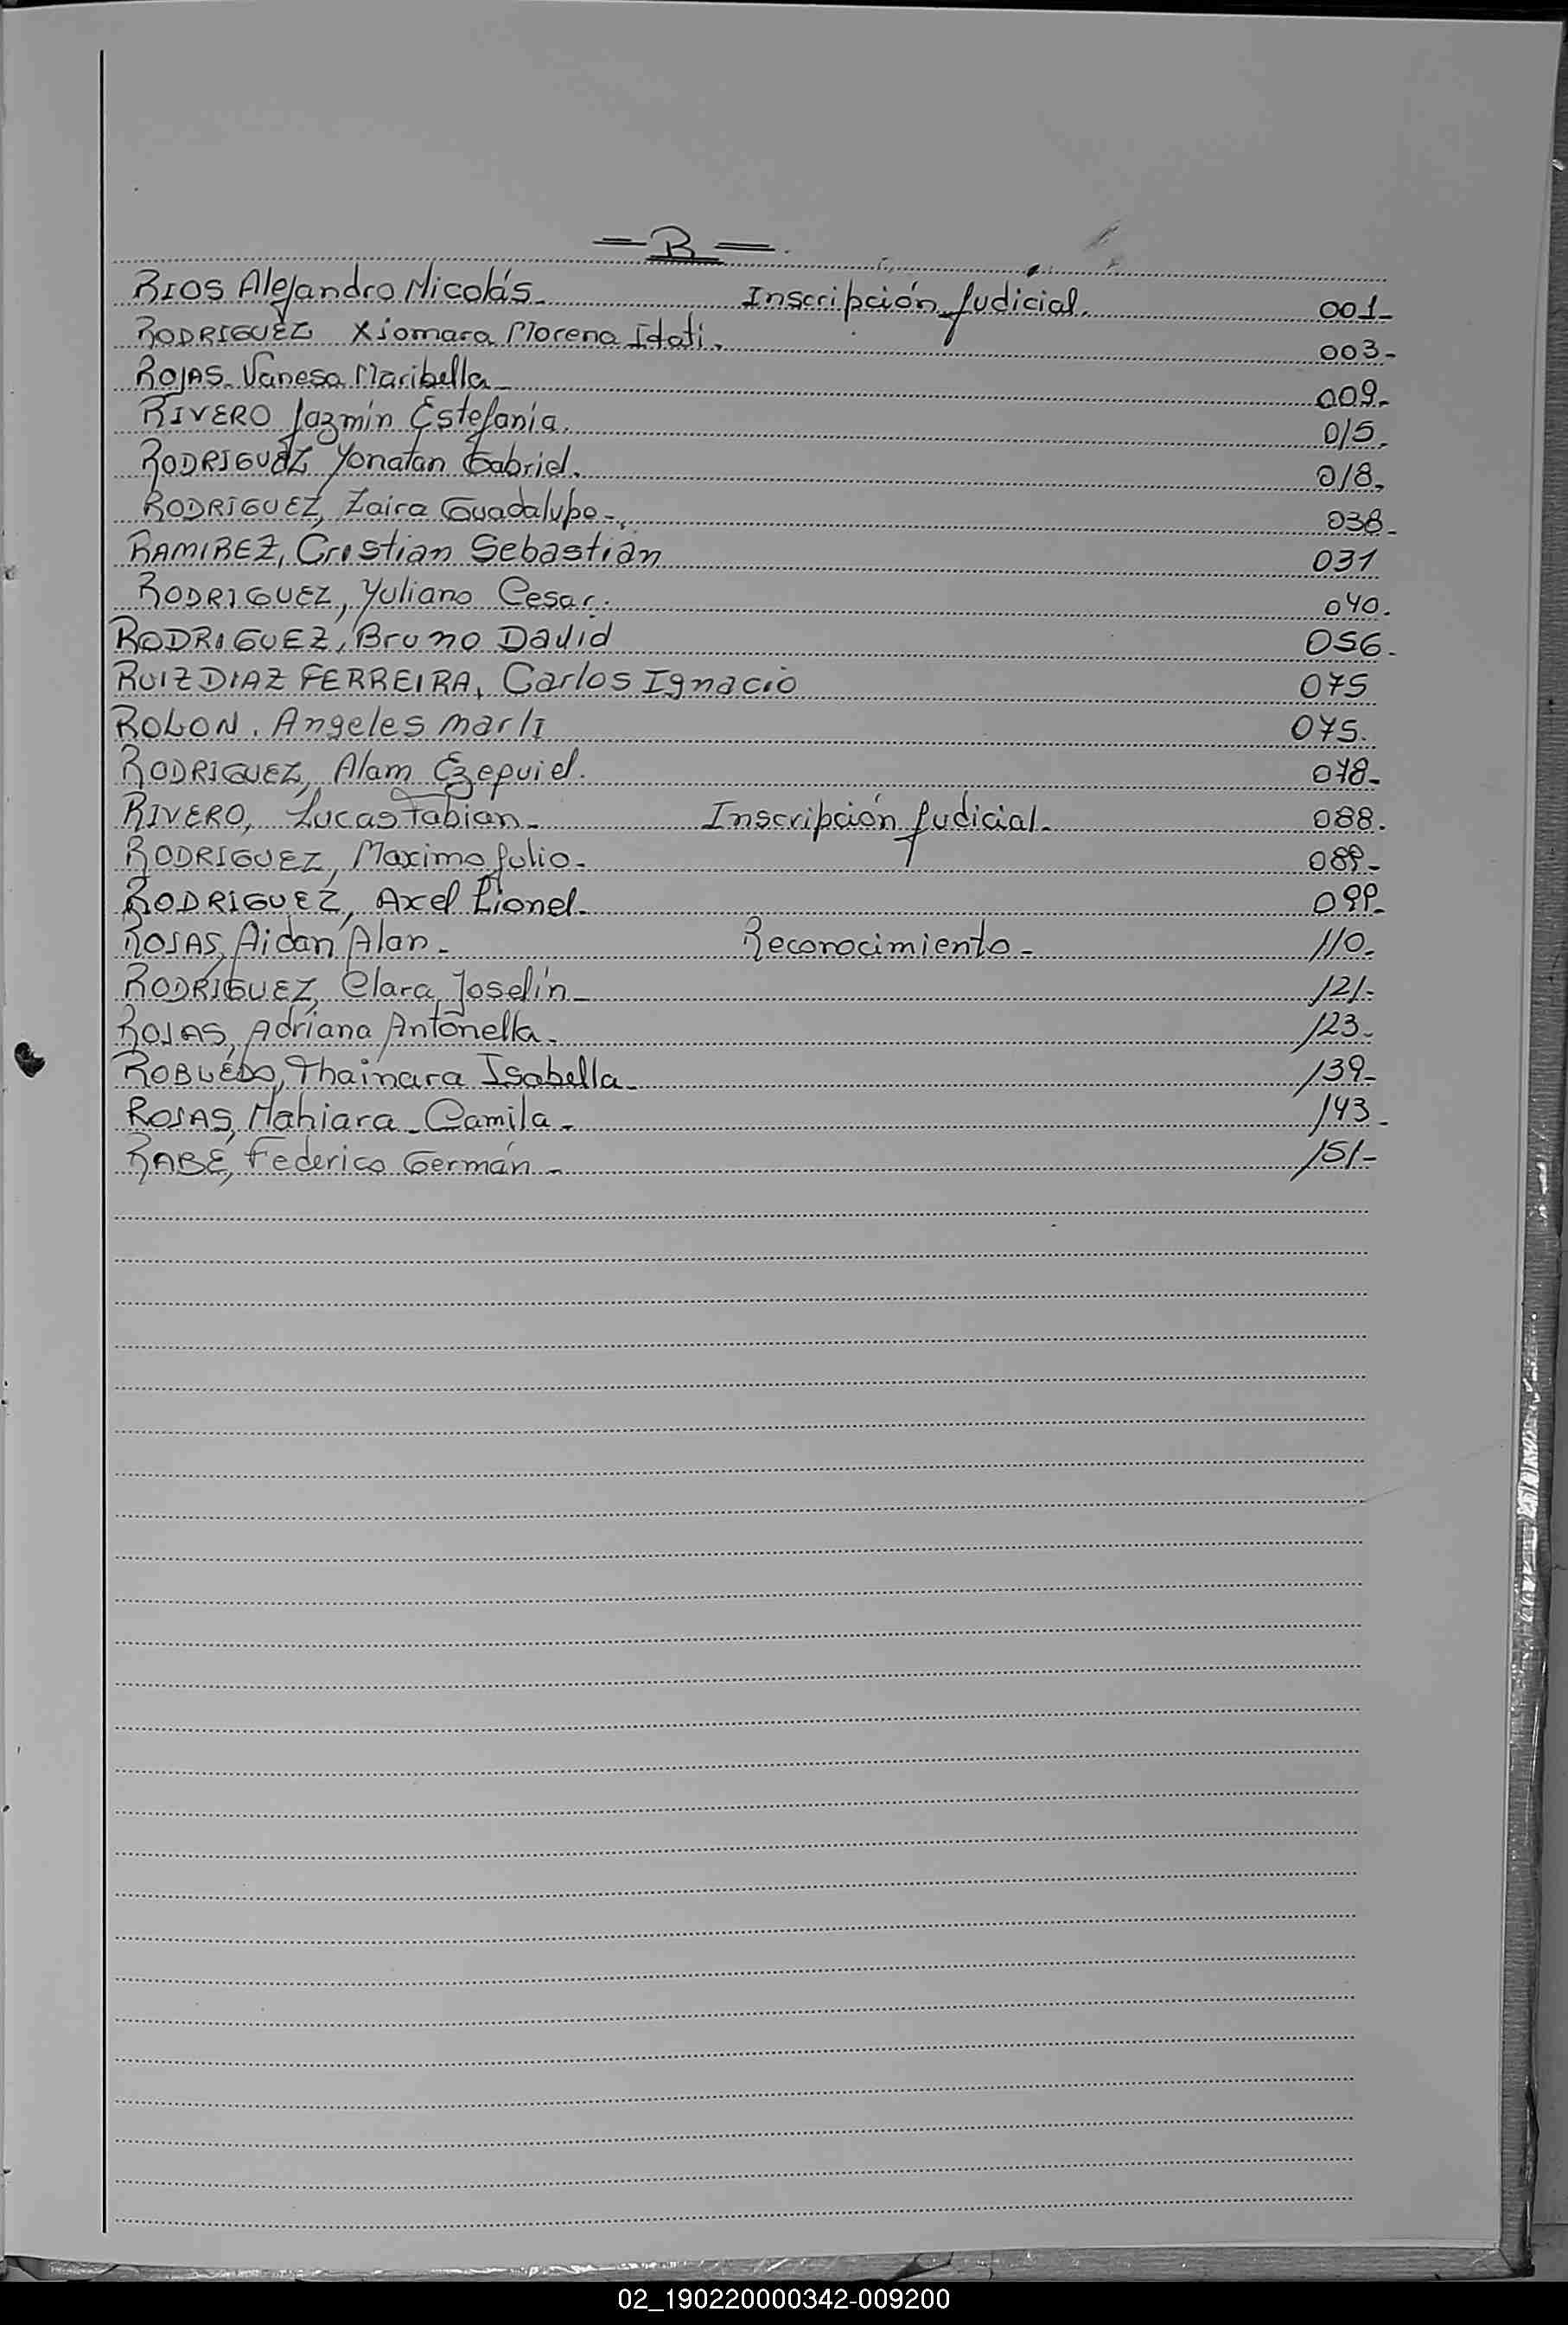 =R=
RIOS Alejandro Nicolás. Inscripción Judicial. 001-
RODRIGUEZ Xiomara Morena Itati. 003-
ROJAS. Vanesa Maribella- 009-
RIVERO Jazmín Estefanía. 015.
RODRIGUEZ Yonatan Gabriel. 018.
RODRIGUEZ, Zaira Guadalupe-. 038-
RAMIREZ, Cristian Sebastián 031
RODRIGUEZ, Yuliano Cesar. 040.
RODRIGUEZ, Bruno David 056-
RUIZ DIAZ FERREIRA, Carlos Ignacio 075
ROLON. Angeles Marli 075.
RODRIGUEZ, Alam Ezequiel. 078-
RIVERO, Lucas Fabian- Inscripción Judicial- 088.
RODRIGUEZ, Maximo Julio- 089-
RODRIGUEZ, Axel Lionel- 099-
ROJAS, Aidan Alan- Reconocimiento- 110-
RODRIGUEZ, Clara Joselín- 121-
ROJAS, Adriana Antonella. 123-
ROBLEDO, Thainara Isabella- 139-
ROJAS, Nahiara Camila- 143-
RABE, Federico Germán- 151-
02_190220000342-009200